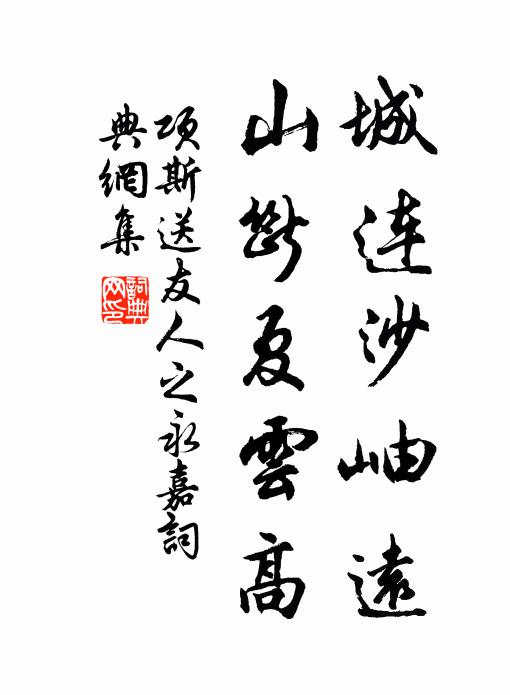 城連沙岫遠
山斷夏雲高
項斯送友人之永嘉詞
典網集
詞典网印